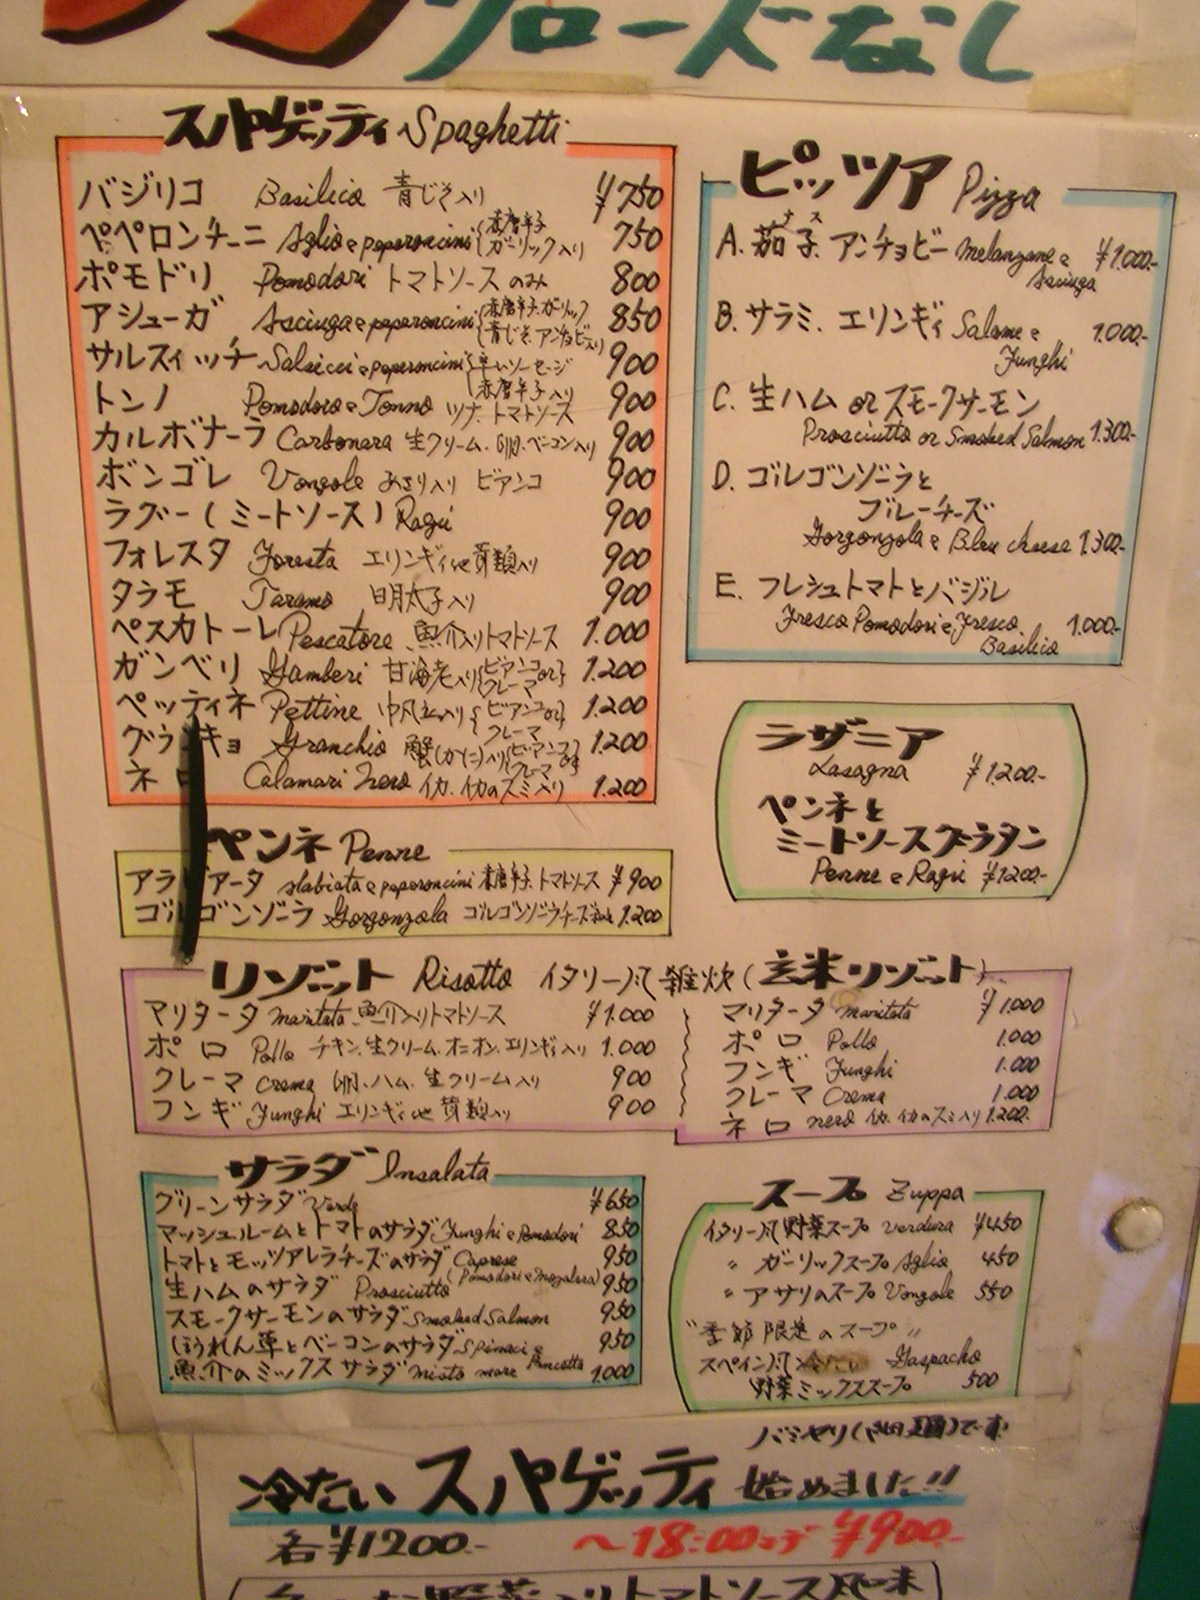 クローズなし
スパゲッティ Spaghetti
バジリコ Basilico 青じそ入り ¥750
ペペロンチーニ Aglio e peperoncini 赤唐辛子 ガーリック入り 750
ポモドリ Pomodori トマトソースのみ 800
アシューガ Asciuga e peperoncini 赤唐辛子.ガーリック 青じそ.アンチョビ入り 850
サルスィッチ Salsicci e peperoncini 辛いソーセージ 赤唐辛子入り 900
トンノ Pomodoro e Tonno ツナ.トマトソース 900
カルボナーラ Carbonara 生クリーム.卵.ベーコン入り 900
ボンゴレ Vongole あさり入り ビアンコ 900
ラグー(ミートソース) Ragú 900
フォレスタ Foresta エリンギィ他茸類入り 900
タラモ Taramo 明太子入り 900
ペスカトーレ Pescatore 魚介入りトマトソース 1.000
ガンベリ Gamberi 甘海老入り{ビアンコor クレーマ} 1.200
ペッティネ Pettine 帆立入り{ビアンコor クレーマ 1.200
グラ キョ Granchio 蟹(かに)入り(ビアンコor クレーマ 1.200
ネロ Calamari nero イカ.イカのスミ入り 1.200
ペンネ Penne
アラ アータ alabiata e peperoncini 赤唐辛子.トマトソース ¥900
ゴルゴンゾーラ Gorgonzola ゴルゴンゾーラチーズ 1.200
ピッツア Pizza
A. 茄子(ナス). アンチョビー melanzane e Asciuga ¥1.000-
B. サラミ. エリンギィ Salame e Funghi 1.000-
C. 生ハム or スモークサーモン
Prosciutto or Smoked Salmon 1.300-
D. ゴルゴンゾーラと
ブルーチーズ
Gorgonzola e Bleu cheese 1.300-
E. フレシュトマトとバジル
Fresco Pomodori e Fresco Basilico 1.000-
ラザニア
Lasagna ¥1.200-
ペンネと
ミートソースグラタン
Penne e Ragú ¥1200-
リゾット Risotto イタリー風雑炊 (玄米リゾット)
マリタータ maritata 魚介入りトマトソース ¥1.000
ポロ Pollo チキン.生クリーム.オニオン.エリンギィ入り 1.000
クレーマ Crema 卵.ハム.生クリーム入り 900
フンギ Funghi エリンギィ他茸類入り 900
マリタータ maritata ¥1.000
ポロ Pollo 1.000
フンギ Funghi 1.000
クレーマ Crema 1.000
ネロ nero イカ.イカのスミ入り 1.200-
サラダ Insalata
グリーンサラダ Verde ¥650
マッシュルームとトマトのサラダ Funghi e Pomodori 850
トマトとモッツアレラチーズのサラダ Caprese (Pomodori e Mozalera) 950
生ハムのサラダ Prosciutto 950
スモークサーモンのサラダ Smoked Salmon 950
ほうれん草とベーコンのサラダ Spinaci e Pancetta 950
魚介のミックスサラダ misto mare 1.000
スープ Zuppa
イタリー風野菜スープ verdura ¥450
〃 ガーリックスープ Aglio 450
〃 アサリのスープ Vongole 550
"季節限定のスープ"
スペイン風冷たい Gaspacho
野菜ミックススープ 500
冷たいスパゲッティ 始めました!!
各¥1200- ～18:00マデ ¥900-